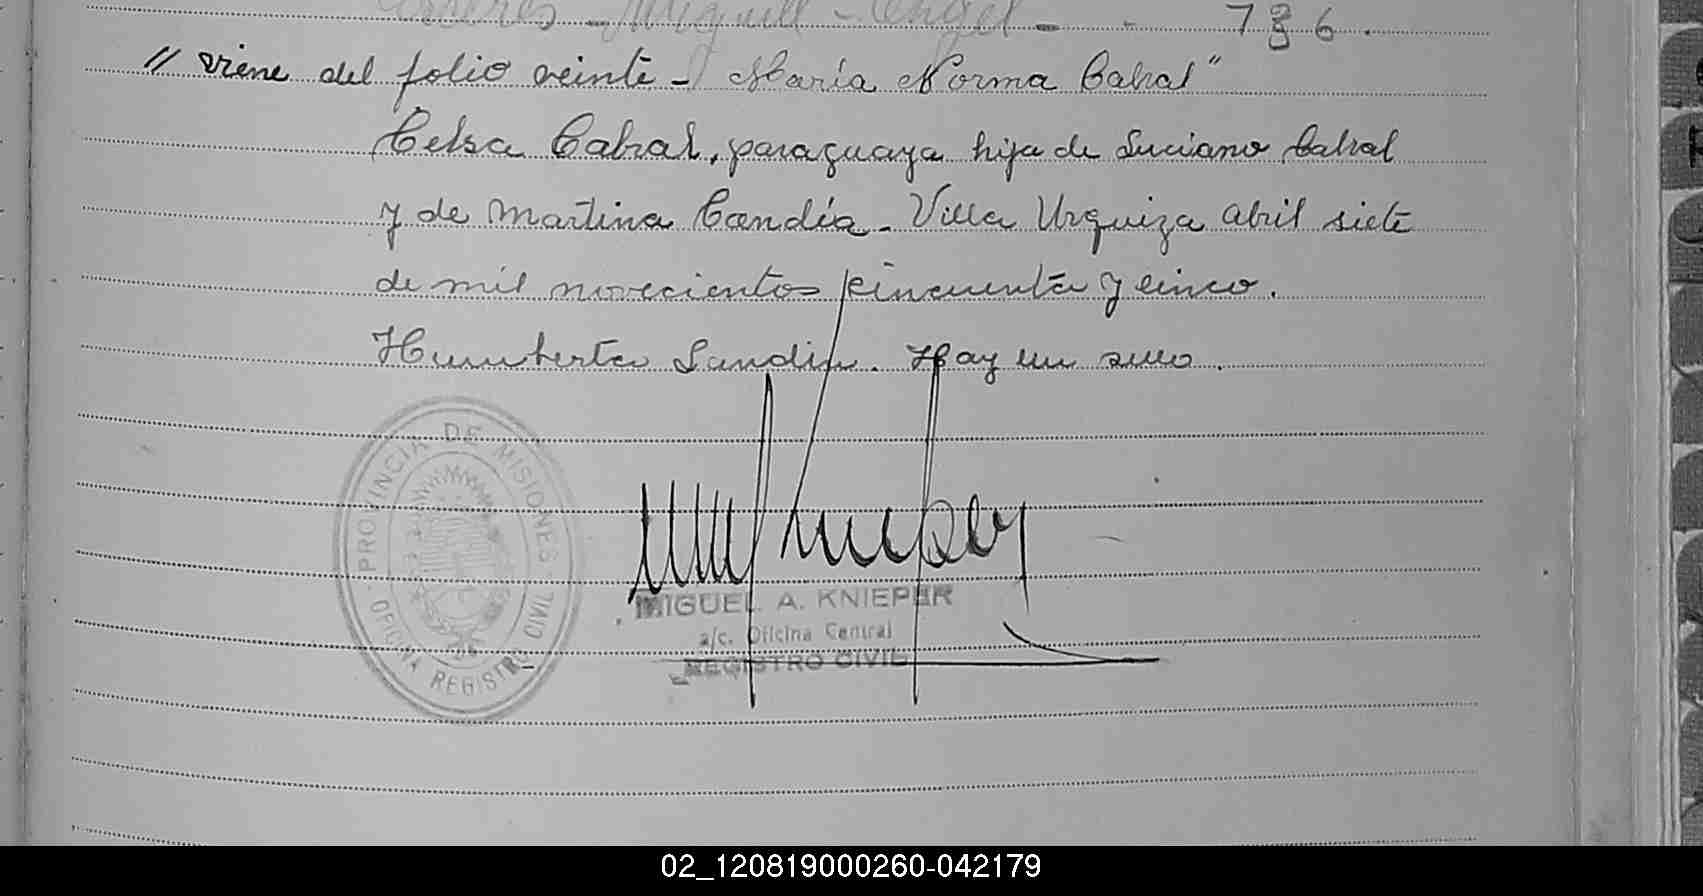 Miguel - Angel - - 736.
// viene del folio veinte - María Norma Cabral"
Celsa Cabral, paraguaya hija de Luciano Cabral
y de Martina Candia. Villa Urquiza abril siete
de mil novecientos cincuenta y cinco.
Humberto Landin. Hay un sello.
PROVINCIA DE MISIONES
OFICINA REGISTRO CIVIL
MIGUEL A. KNIEPER
a/c. Oficina Central
REGISTRO CIVIL
02_120819000260-042179